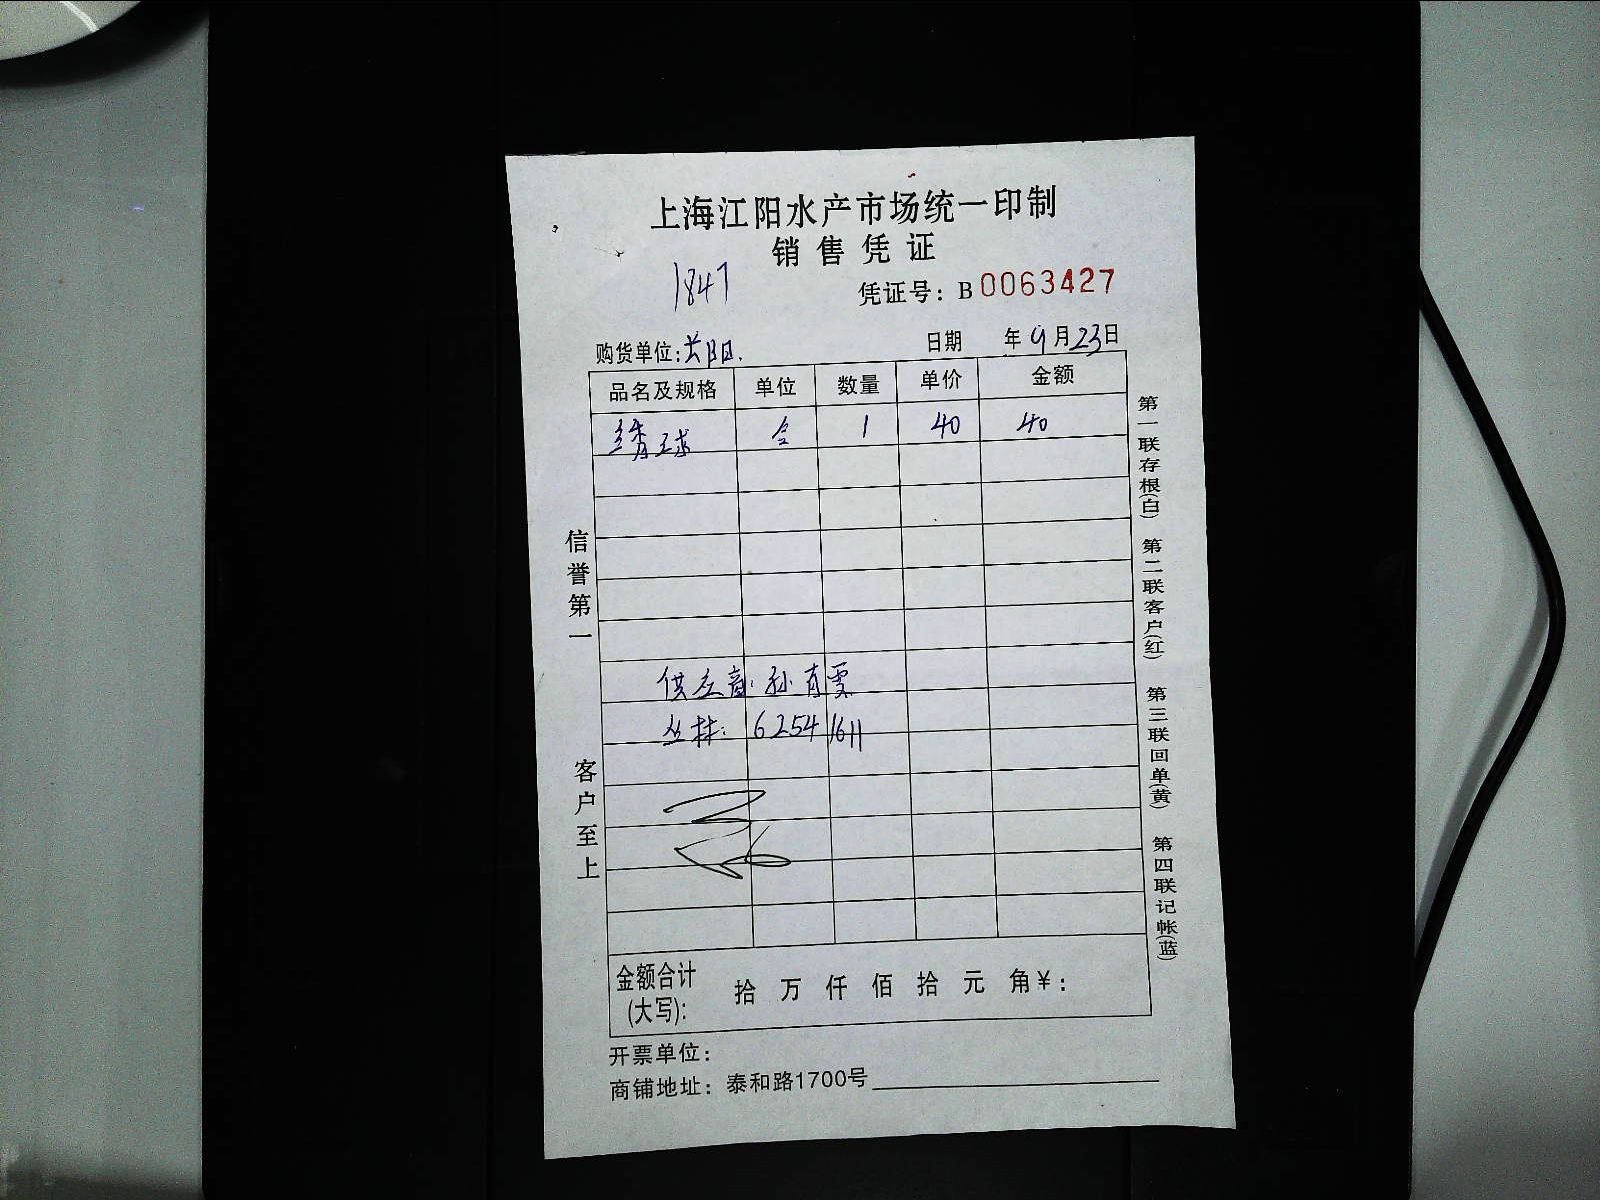 上海江阳水产市场统一印制
销售凭证
1847
凭证号：B0063427
购货单位：长阳.
日期 年9月23日
品名及规格 单位 数量 单价 金额
绣球 1 40 40
信誉第一
客户至上
供应商：孙肖雯
丛林：62541611
金额合计(大写)： 拾 万 仟 佰 拾 元 角¥：
开票单位：
商铺地址：泰和路1700号
第一联存根(白) 第二联客户(红) 第三联回单(黄) 第四联记帐(蓝)